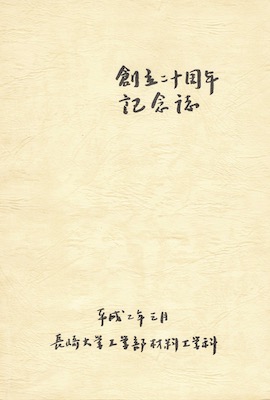 創立二十周年
記念誌
平成二年三月
長崎大学工学部材料工学科